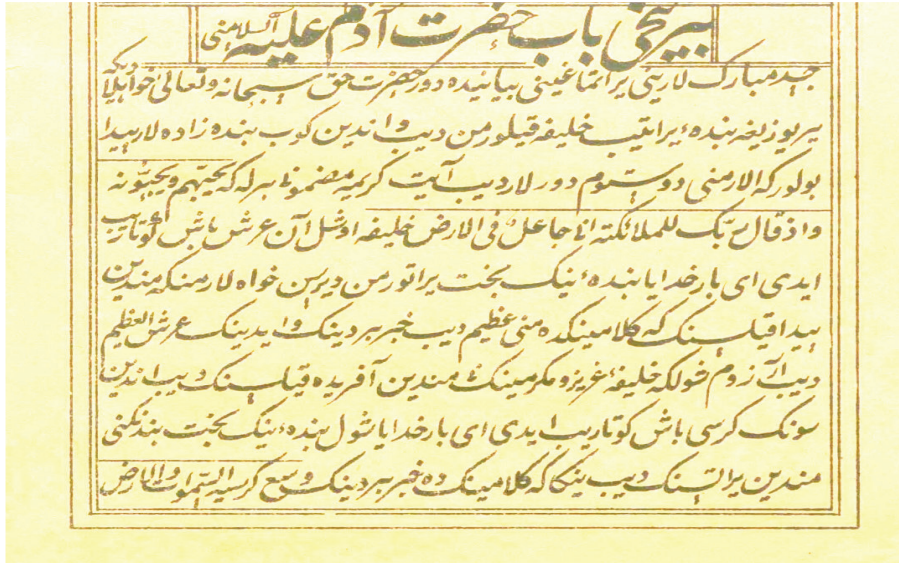 بیرنجی باب حضرت آدم علیه السلامنی
جسد مبارک لارینی یراتماغینی بیانیده دور حضرت حق سبحانه وتعالی خواهلادیکه
یر یوزیغه بنده ٔ یراتیب خلیفه قیلورمن دیب و اندین کوب بنده زاده لار پیدا
بولور که الار منی دوست توم دورلار دیب آیت کریمه مضمونی برله که یحبهم ویحبونه
واذ قال ربک للملائکته انی جاعل فی الارض خلیفه اوشل آن عرش باش کوتاریب
ایدی ای بار خدایا بنده ٔ نیک بخت یراتورمن دیرسن خواه لارمنکه مندین
پیدا قیلسنک که کلامینکده منی عظیم دیب خبر بردینک و ایدینک عرش العظیم
دیب آرزوم خولکه خلیفهٔ عزیز و مکرمینک نی مندین آفریده قیلسنک دیب اندین
سونک کرسی باش کوتاریب ایدی ای بار خدایا شول بنده ٔ نیک بخت بندنکنی
مندین یراتسنک دیب ینکا که کلامینک ده خبر بردینک وسع کرسیه السموات والارض